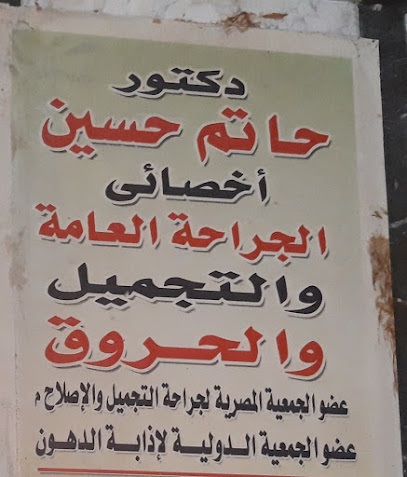 دكتور
حاتم حسين
أخصائى
الجراحة العامة
والتجميل
والحروق
عضو الجمعية المصرية لجراحة التجميل والإصلاح م
عضو الجمعية الدولية لإذابة الدهون